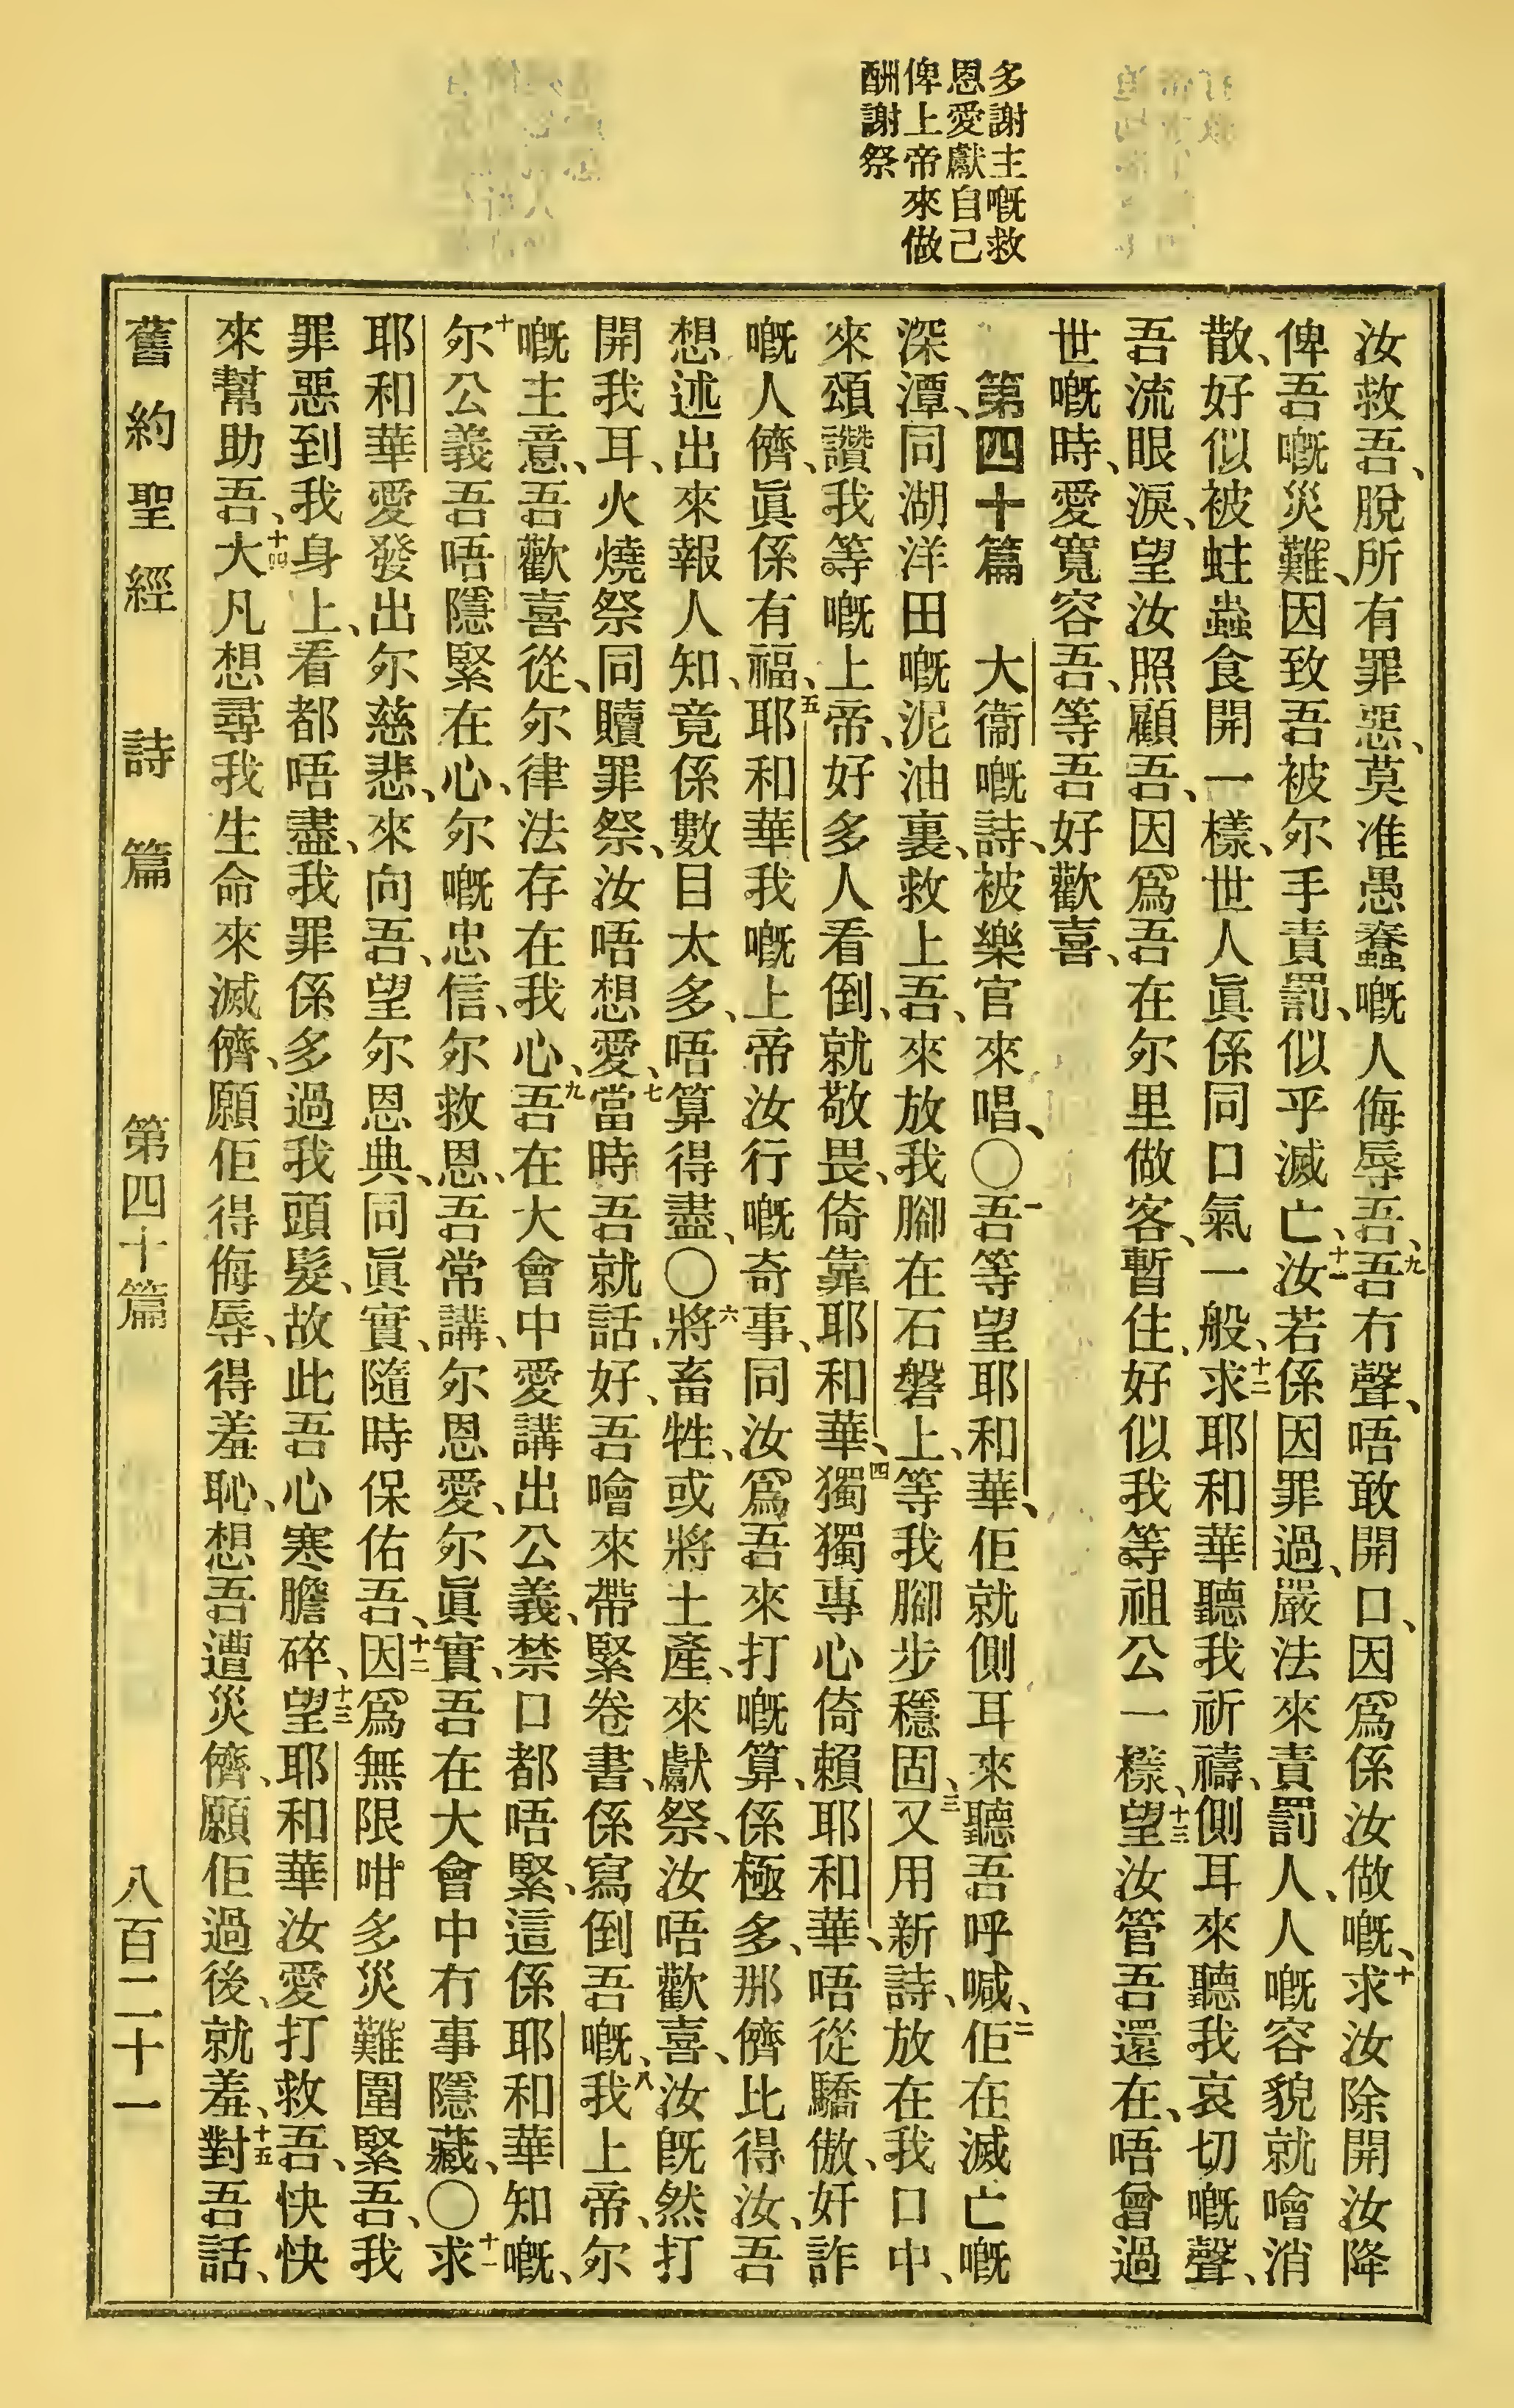 多謝主嘅救
恩愛獻自己
俾上帝來做
酬謝祭
汝救吾、脫所有罪惡、莫准愚蠢嘅人侮辱吾、九吾冇聲、唔敢開口、因爲係汝做嘅、十求汝除開汝降
俾吾嘅災難、因致吾被尔手責罰、似乎滅亡、十一汝若係因罪過、嚴法來責罰人、人嘅容貌就噲消
散、好似被蛀蟲食開一樣、世人眞係同口氣一般、十二求耶和華聽我祈禱、側耳來聽我哀切嘅聲、
吾流眼淚、望汝照顧吾、因爲吾在尔里做客、暫住、好似我等祖公一樣、十三望汝管吾還在、唔曾過
世嘅時、愛寬容吾、等吾好歡喜、
第四十篇　大衞嘅詩、被樂官來唱、〇一吾等望耶和華、佢就側耳來聽吾呼喊、二佢在滅亡嘅
深潭、同湖洋田嘅泥油裏、救上吾、來放我腳在石磐上、等我腳步穩固、三又用新詩、放在我口中、
來頌讚我等嘅上帝、好多人看倒、就敬畏、倚靠耶和華、四獨獨專心倚賴耶和華、唔從驕傲、奸詐
嘅人儕、眞係有福、五耶和華我嘅上帝、汝行嘅奇事、同汝爲吾來打嘅算、係極多、那儕比得汝、吾
想述出來報人知、竟係數目太多、唔算得盡、〇六將畜牲、或將土產、來獻祭、汝唔歡喜、汝旣然打
開我耳、火燒祭同贖罪祭、汝唔想愛、七當時吾就話、好、吾噲來帶緊卷書、係寫倒吾嘅、八我上帝、尔
嘅主意、吾歡喜從、尔律法存在我心、九吾在大會中愛講出公義、禁口都唔緊、這係耶和華知嘅、
十尔公義吾唔隱緊在心、尔嘅忠信、尔救恩、吾常講、尔恩愛、尔眞實、吾在大會中冇事隱藏、〇十一求
耶和華愛發出尔慈悲、來向吾、望尔恩典、同眞實、隨時保佑吾、十二因爲無限咁多災難圍緊吾、我
罪惡到我身上、看都唔盡、我罪係多過我頭髮、故此吾心寒膽碎、十三望耶和華汝愛打救吾、快快
來幫助吾、十四大凡想尋我生命來滅儕、願佢得侮辱、得羞恥、想吾遭災儕、願佢過後、就羞、十五對吾話、
舊約聖經　詩篇　第四十篇　八百二十一